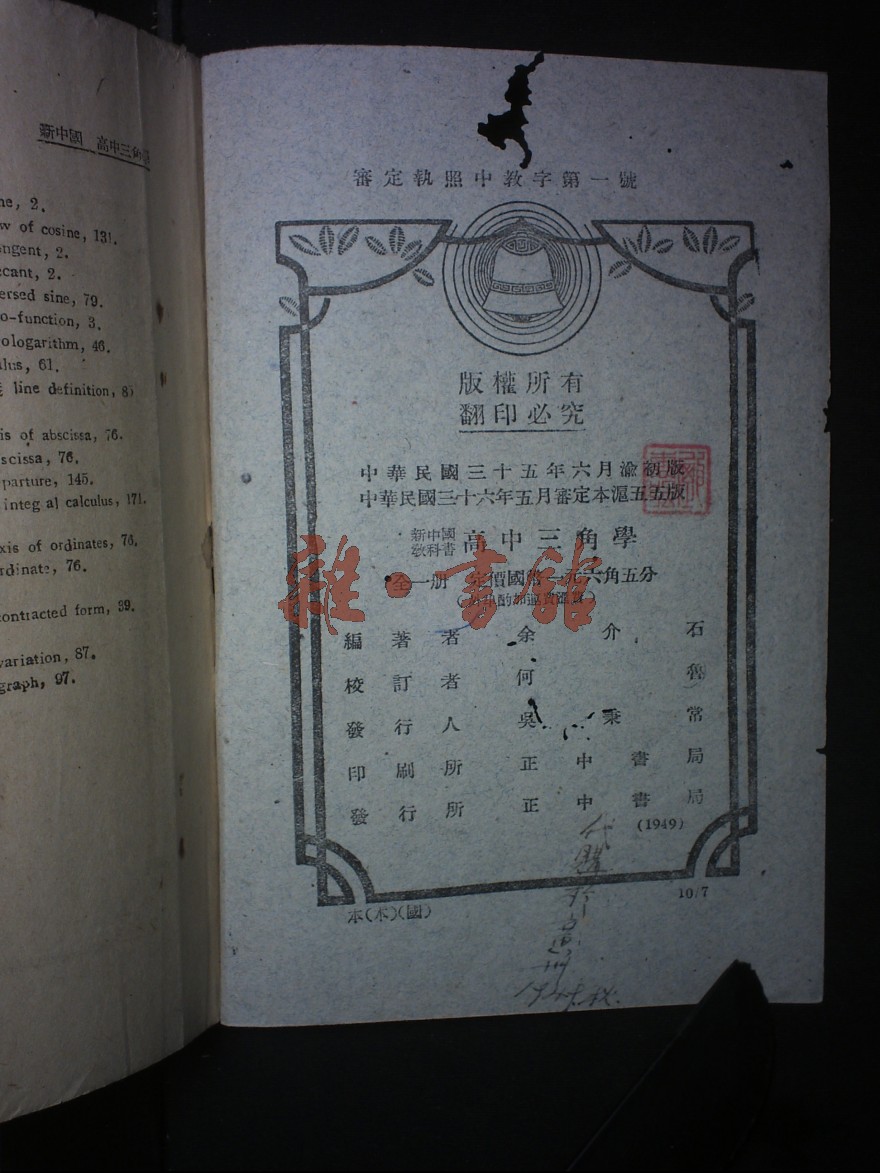 新中國 高中三角
ne, 2.
w of cosine, 131.
angent, 2.
ecant, 2.
ersed sine, 79.
o-function, 3.
ologarithm, 46.
ulus, 61.
line definition, 8
is of abscissa, 76.
scissa, 76.
parture, 145.
integ al calculus, 171.
xis of ordinates, 76.
rdinate, 76.
contracted form, 39.
variation, 87.
graph, 97.
審定執照中教字第一號
版權所有
翻印必究
中華民國三十五年六月渝初版
中華民國三十六年五月審定本滬五五版
新中國
教科書
高中三角學
全一册 定價國幣一元六角五分
編著者 余介石
校訂者 何魯
發行人 吳秉常
印刷所 正中書局
發行所 正中書局
(1949)
本(木)(國)
10/7
雜·書館